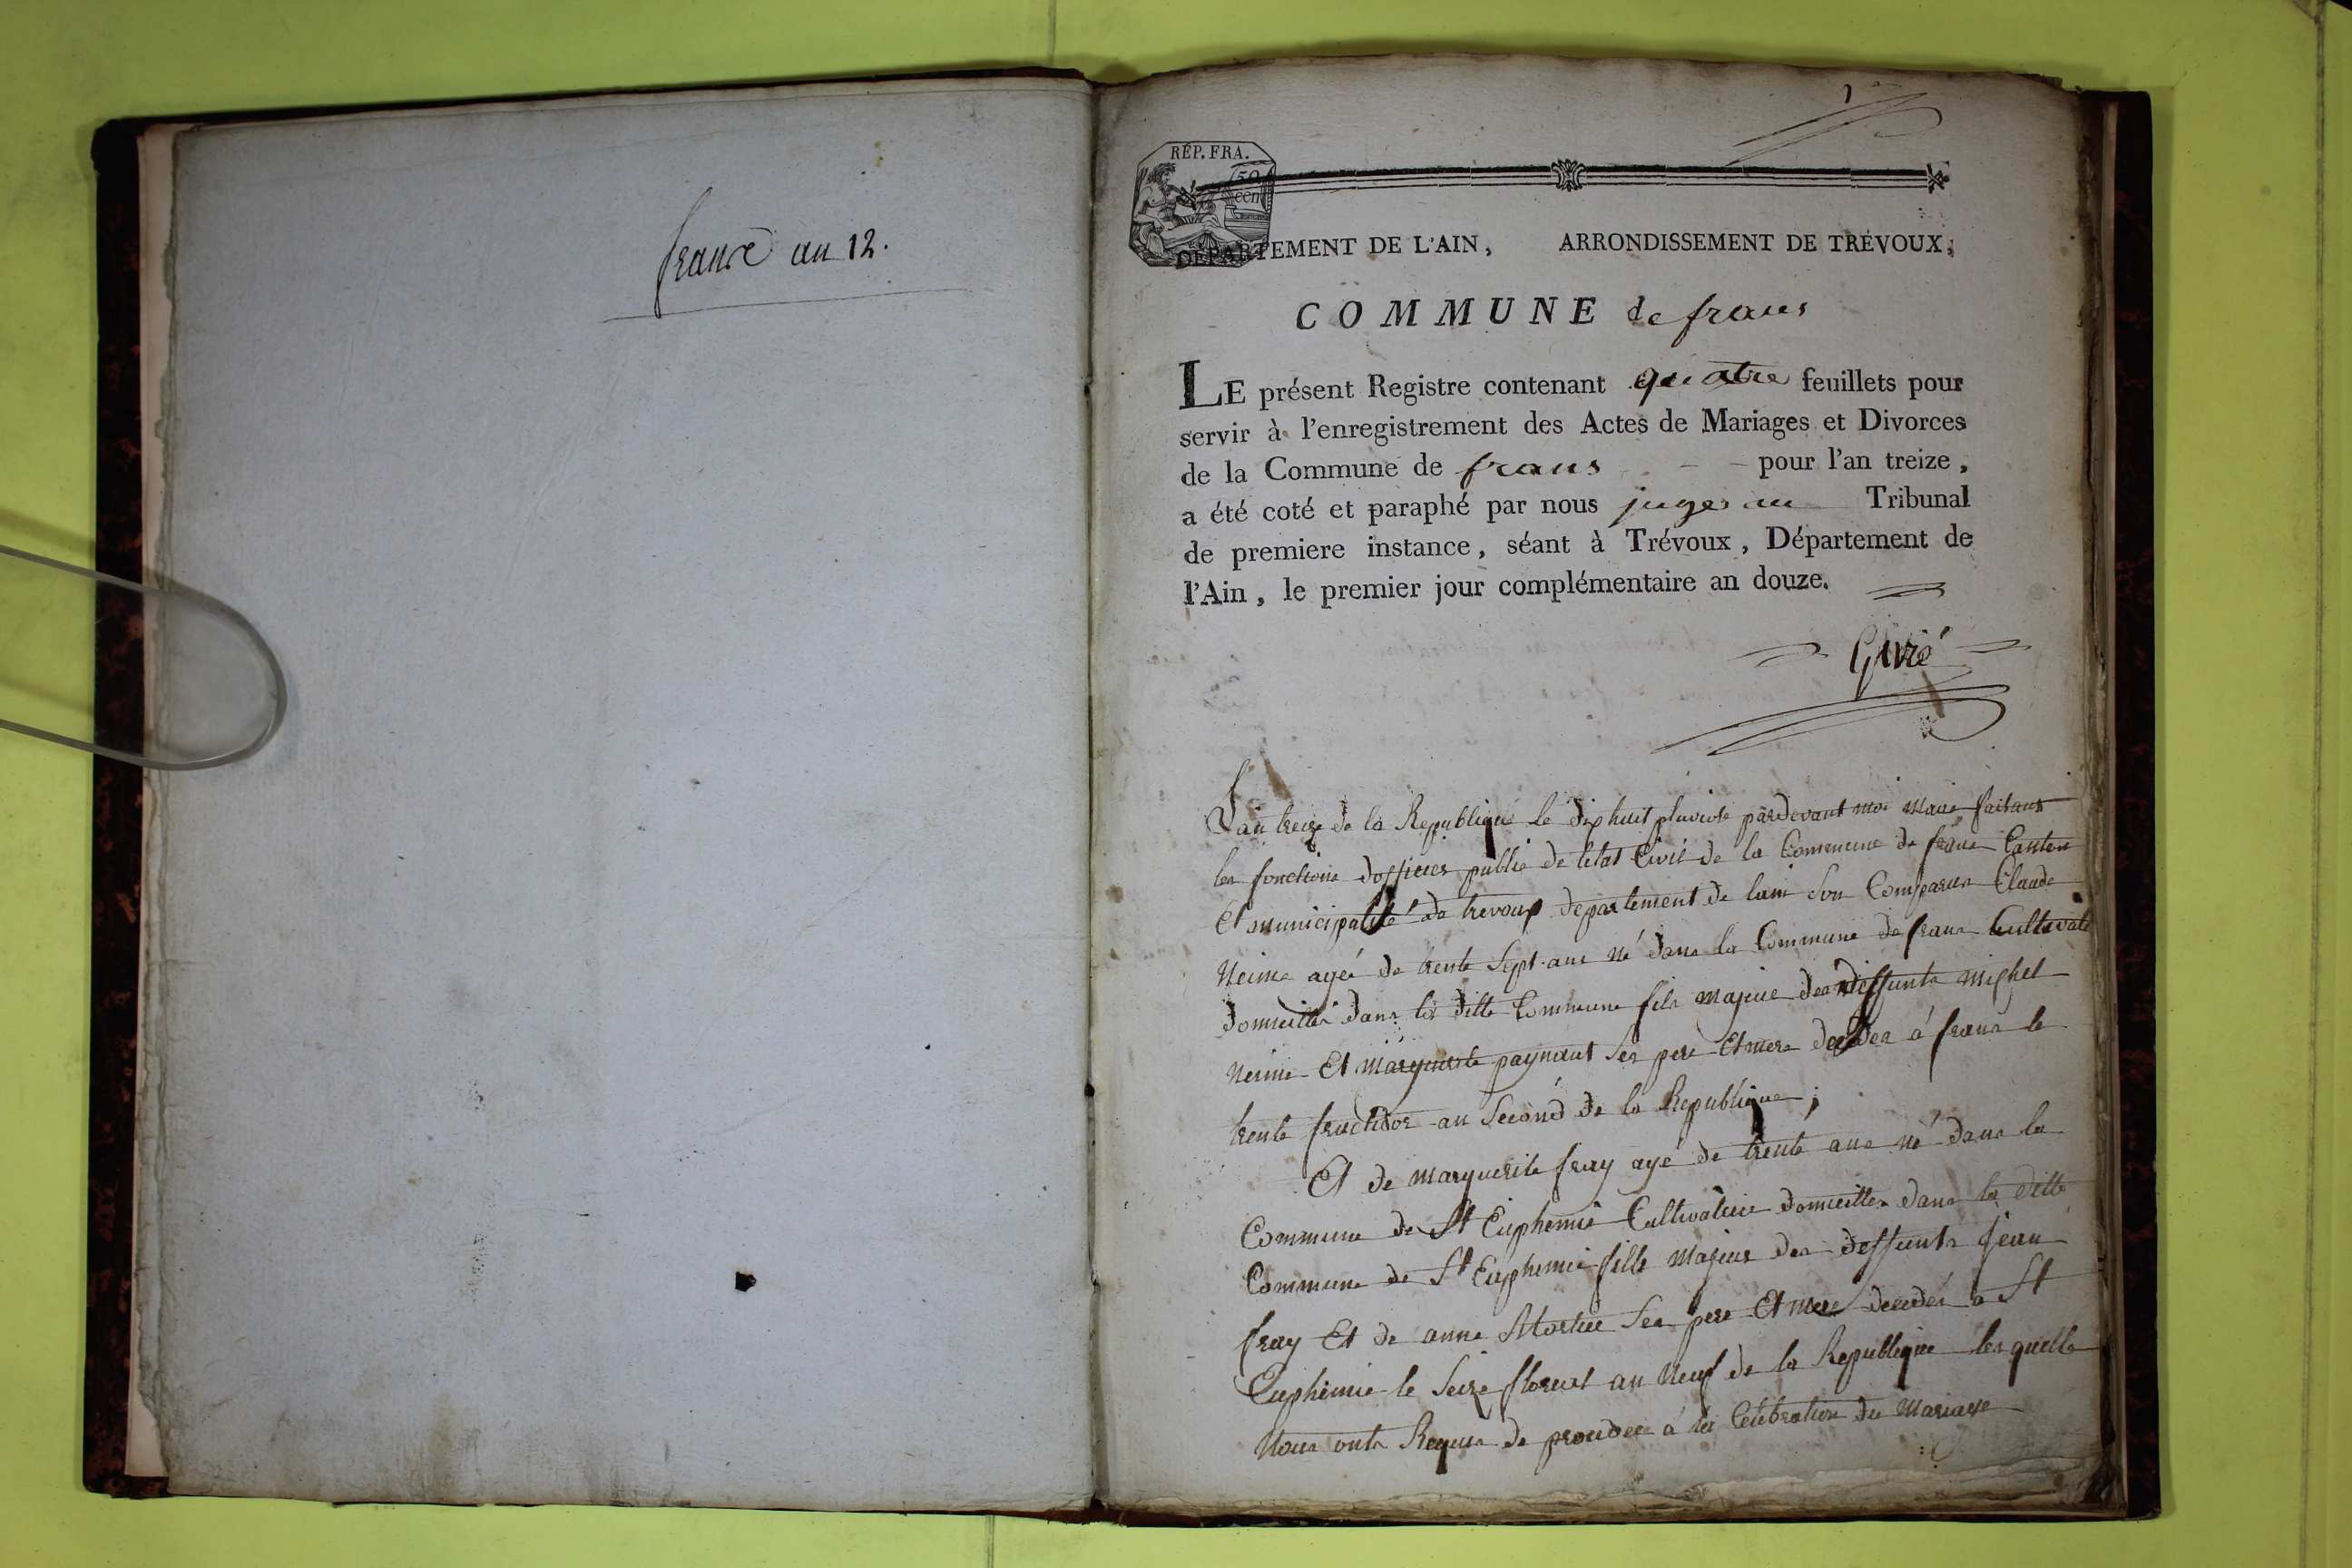 frans an 12.
1
RÉP. FRA.
50
cen
DÉPARTEMENT DE L'AIN, ARRONDISSEMENT DE TRÉVOUX,
COMMUNE de frans
LE présent Registre contenant quatre feuillets pour
servir à l'enregistrement des Actes de Mariages et Divorces
de la Commune de frans - - pour l'an treize,
a été coté et paraphé par nous juges au Tribunal
de premiere instance, séant à Trévoux, Département de
l'Ain, le premier jour complémentaire an douze.
L'an treize de la Republique le dix huit pluviose pardevant moi Maire faisant
les fonctions dofficier public de letat Civil de la Commune de frans Canton
Et municipalité de trevoux departement de lain son Comparus Claude
Neime agéé de trente Sept ans né dans la Commune de frans Cultivate
domicillié dans la ditte Commune fils majeur des deffunts mighel
neime Et marguerite paynaut ses pere Et mere decedes à frans le
trente fructidor an Second de la Republique ;
Et de marguerite fray agé de trente ans né dans la
Commune de St Euphemie Cultivatrice domicillée dans la ditte
Commune de St Euphemie fille majeur des deffunts jean
fray Et de anne Ses pere Et mere decedés a St
Euphemie le Seize floreal an Neuf de la Republique lesquelle
Nous onts Requis de proceder à la Célébration du Mariage